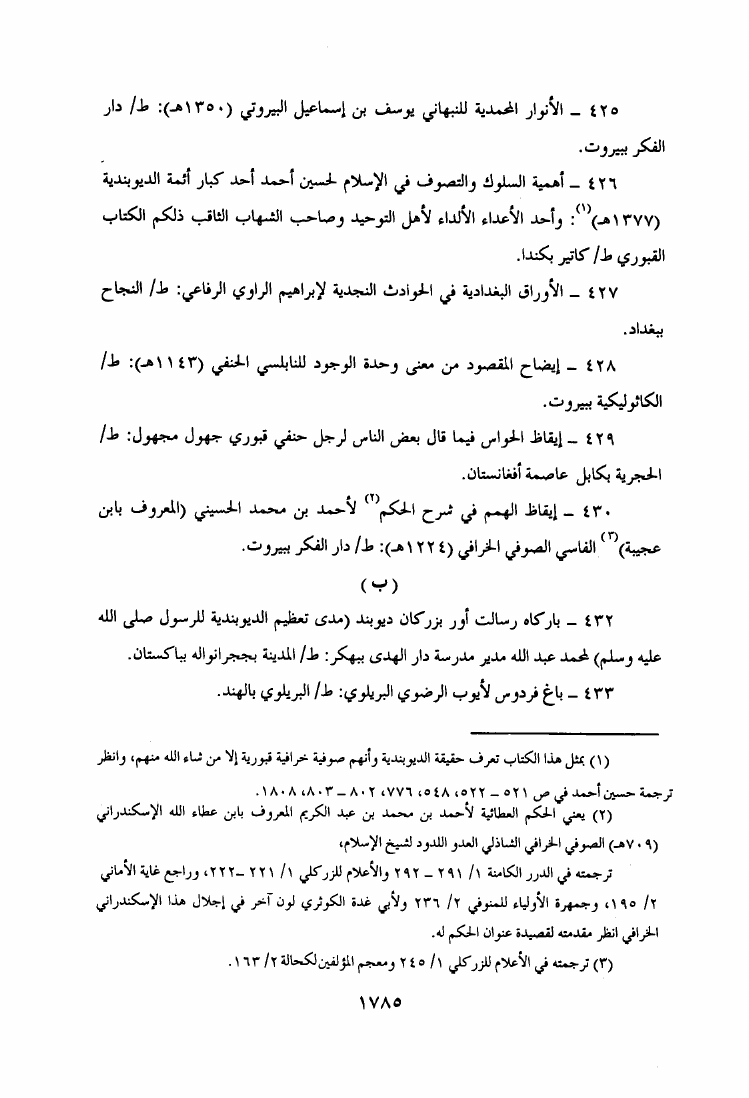 ٤٢٥ ــ الأنوار المحمدية للنبهاني يوسف بن إسماعيل البيروتي (١٣٥٠هـ): ط/ دار
الفكر ببيروت.
٤٢٦ ــ أهمية السلوك والتصوف في الإسلام لحسين أحمد أحد كبار أئمة الديوبندية
(١٣٧٧هـ)(١): وأحد الأعداء الألداء لأهل التوحيد وصاحب الشهاب الثاقب ذلكم الكتاب
القبوري ط/ كاتير بكندا.
٤٢٧ ــ الأوراق البغدادية في الحوادث النجدية لإبراهيم الراوي الرفاعي: ط/ النجاح
ببغداد.
٤٢٨ ــ إيضاح المقصود من معنى وحدة الوجود للنابلسي الحنفي (١١٤٣هـ): ط/
الكاثوليكية ببيروت.
٤٢٩ ــ إيقاظ الحواس فيما قال بعض الناس لرجل حنفي قبوري جهول مجهول: ط/
الحجرية بكابل عاصمة أفغانستان.
٤٣٠ ــ إيقاظ الهمم في شرح الحكم(٢) لأحمد بن محمد الحسيني (المعروف بابن
عجيبة)(٣) الفاسي الصوفي الخرافي (١٢٢٤هـ): ط/ دار الفكر ببيروت.
(ب)
٤٣٢ ــ باركاه رسالت أور بزركان ديوبند (مدى تعظيم الديوبندية للرسول صلى الله
عليه وسلم) لمحمد عبد الله مدير مدرسة دار الهدى ببهكر: ط/ المدينة بججرانواله بباكستان.
٤٣٣ ــ باغ فردوس لأيوب الرضوي البريلوي: ط/ البريلوي بالهند.
(١) بمثل هذا الكتاب تعرف حقيقة الديوبندية وأنهم صوفية خرافية قبورية إلا من شاء الله منهم، وانظر
ترجمة حسين أحمد في ص ٥٢١ ــ ٥٢٢، ٥٤٨، ٧٧٦، ٨٠٢ ــ ٨٠٣، ١٨٠٨.
(٢) يعني الحكم العطائية لأحمد بن محمد بن عبد الكريم المعروف بابن عطاء الله الإسكندراني
(٧٠٩هـ) الصوفي الخرافي الشاذلي العدو اللدود لشيخ الإسلام،
ترجمته في الدرر الكامنة ١/ ٢٩١ ــ ٢٩٢ والأعلام للزركلي ١/ ٢٢١ ــ٢٢٢، وراجع غاية الأماني
٢/ ١٩٥، وجمهرة الأولياء للمنوفي ٢/ ٢٣٦ ولأبي غدة الكوثري لون آخر في إجلال هذا الإسكندراني
الخرافي انظر مقدمته لقصيدة عنوان الحكم له.
(٣) ترجمته في الأعلام للزركلي ١/ ٢٤٥ ومعجم المؤلفين لكحالة ٢/ ١٦٣.
١٧٨٥